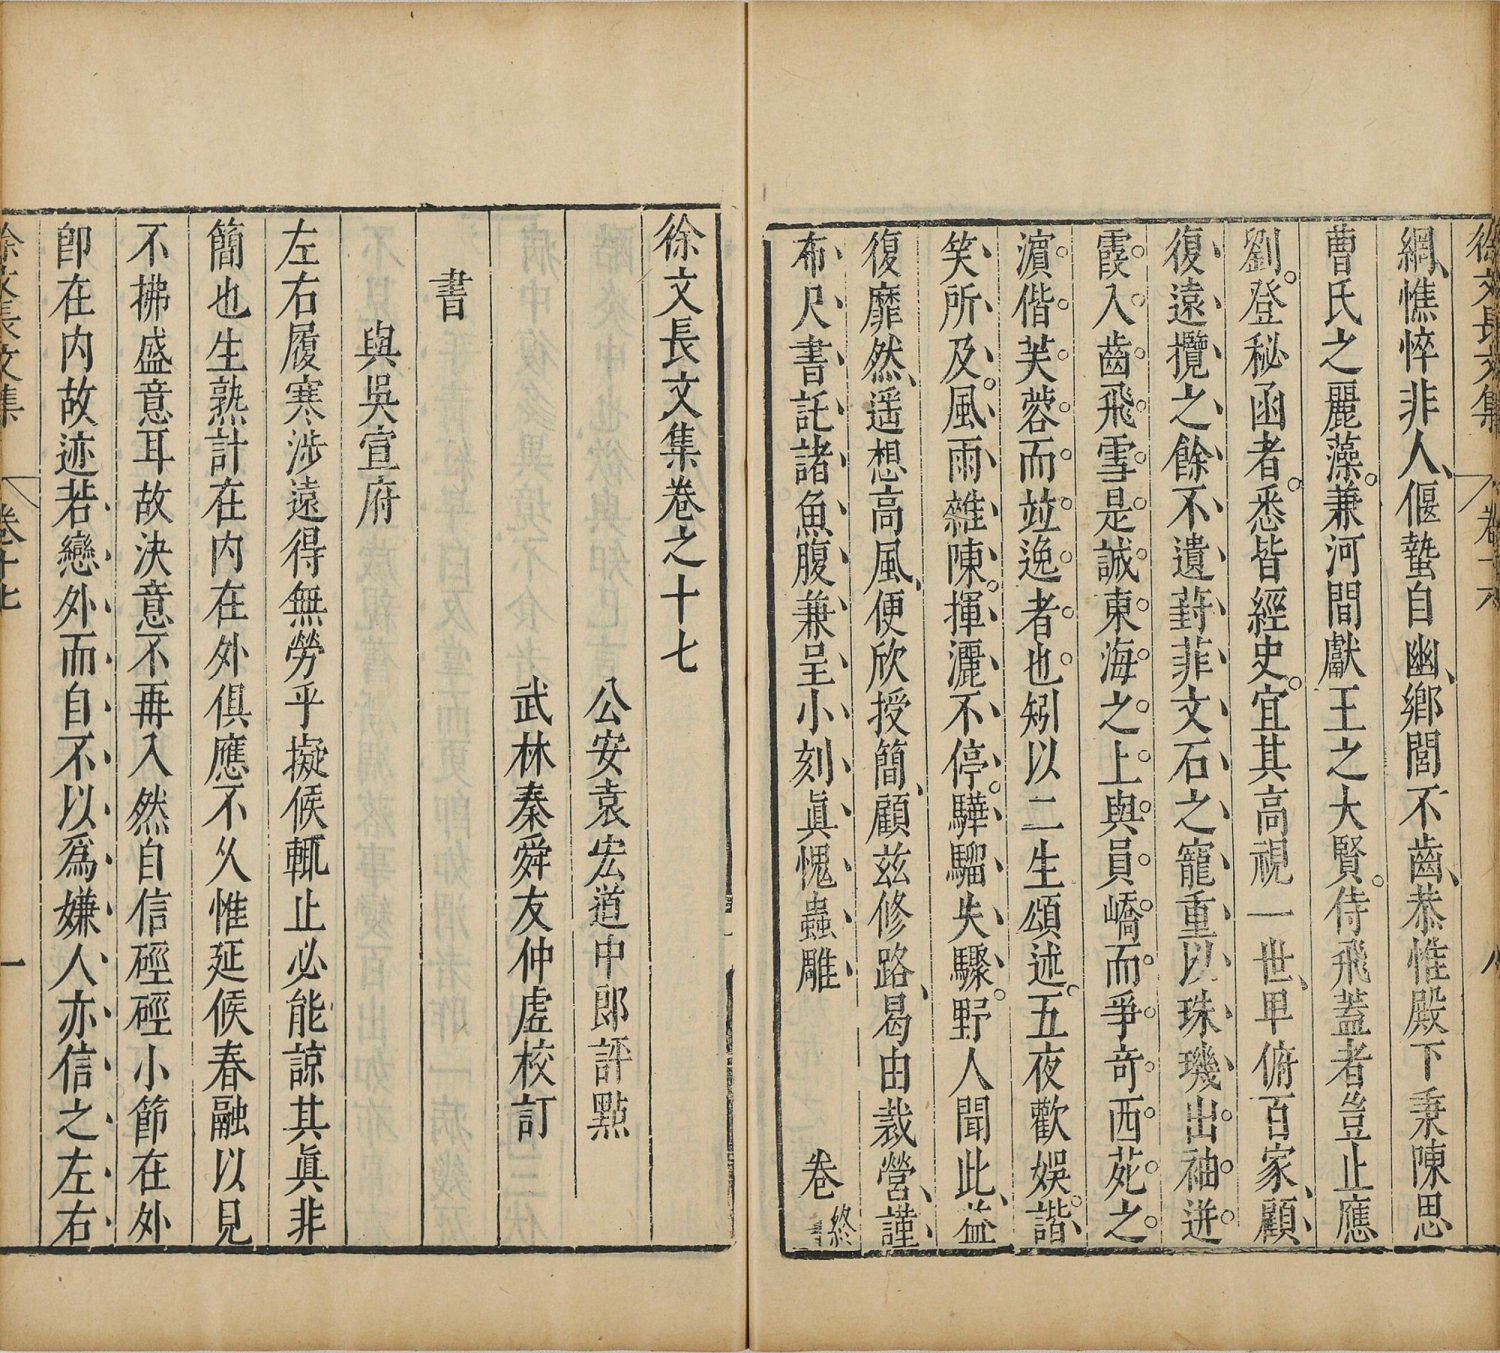 徐文長文集 卷十六 八
網憔悴非人偃蟄自幽鄉閭不齒恭惟殿下秉陳思
曹氏之麗藻兼河間獻王之大賢侍飛蓋者豈止應
劉登秘函者悉皆經史宜其高視一世卑俯百家顧
復遠攬之餘不遺葑菲文石之寵重以珠璣出袖迸
霞入齒飛雪是誠東海之上與員嶠而爭奇西苑之
濵偕芙蓉而竝逸者也矧以二生頌述五夜歡娛諧
笑所及風雨雜陳揮灑不停驊騮失驟野人聞此益
復靡然遥想高風便欣授簡顧兹修路曷由裁營謹
布尺書託諸魚腹兼呈小刻眞愧蟲雕
卷終
徐文長文集卷之十七
公安袁宏道中郎評點
武林秦舜友仲虛校訂
書
與吳宣府
左右履寒涉遠得無勞乎擬候輒止必能諒其眞非
簡也生熟計在内在外俱應不乆惟延候春融以見
不拂盛意耳故決意不再入然自信硜硜小節在外
卽在内故迹若戀外而自不以爲嫌人亦信之左右
徐文長文集 卷十七 一